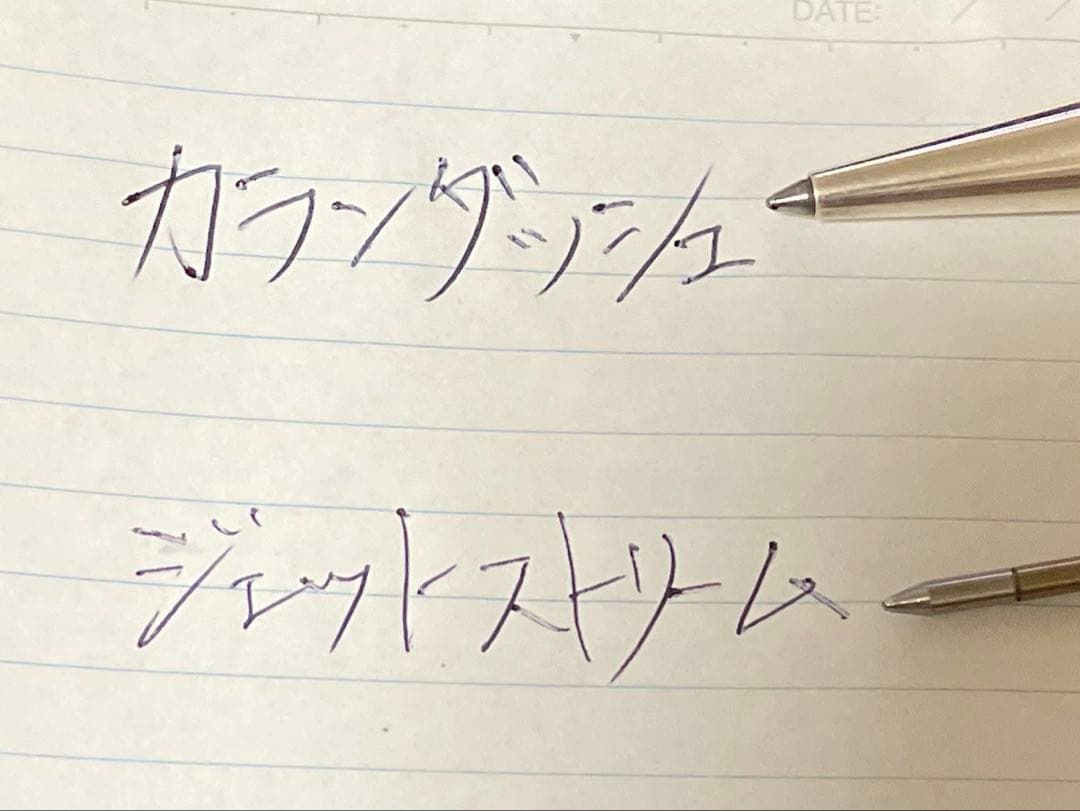 DATE: / /
カランダッシュ
ジェットストリーム